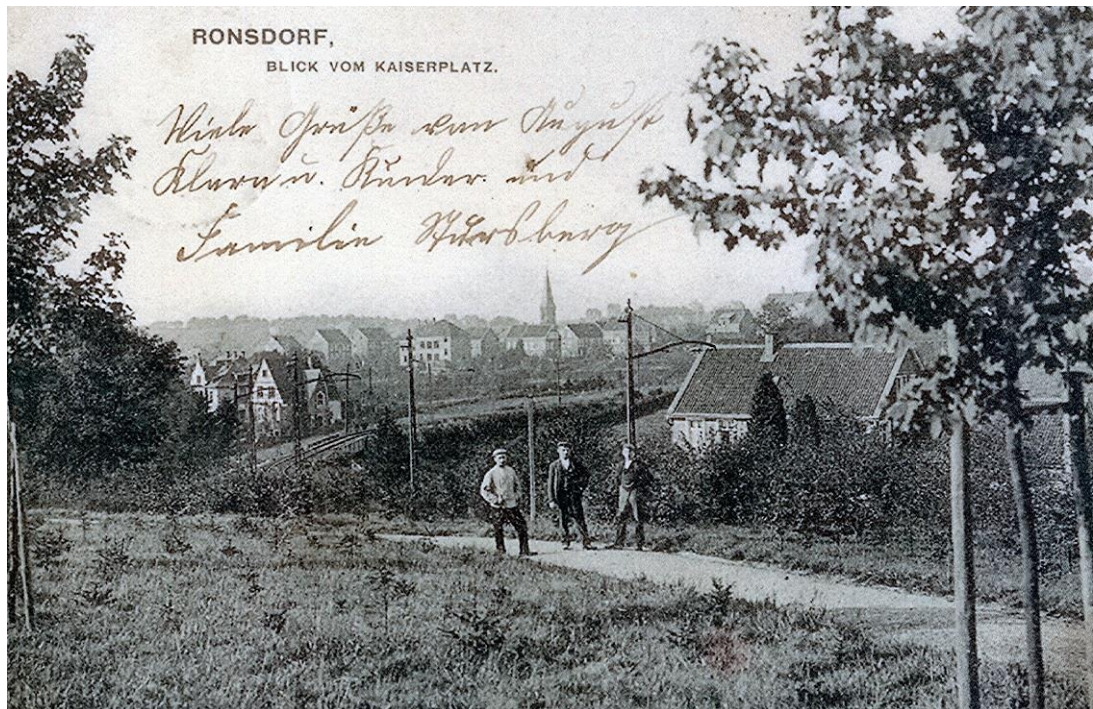 RONSDORF,
BLICK VOM KAISERPLATZ.
Viele Grüße von August
Klara u. Kinder. und
Familie Stursberg